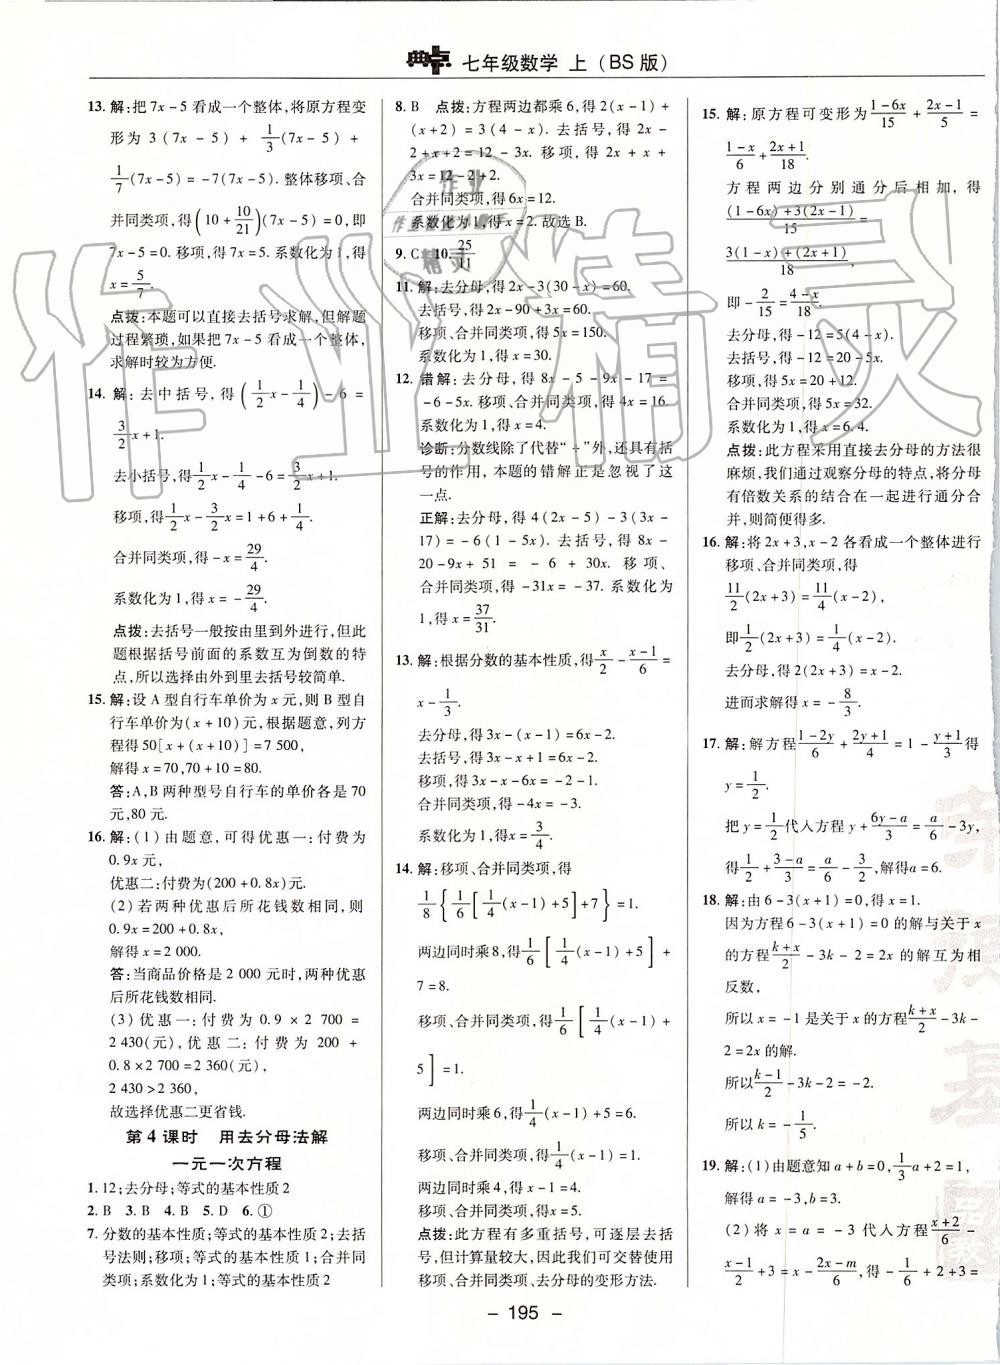 典中点 七年级数学 上(BS版)
13. 解:把7x-5看成一个整体,将原方程变
形为 3(7x-5)+1/3(7x-5)+
1/7(7x-5)=-7(7x-5).整体移项、合
并同类项,得(10+10/21)(7x-5)=0,即
7x-5=0.移项,得7x=5.系数化为1,得
x=5/7.
点拨:本题可以直接去括号求解,但解题
过程繁琐,如果把7x-5看成一个整体,
求解时较为方便.
14. 解:去中括号,得(1/2x-1/4)-6=
3/2x+1.
去小括号,得1/2x-1/4-6=3/2x+1.
移项,得1/2x-3/2x=1+6+1/4.
合并同类项,得-x=29/4.
系数化为1,得x=-29/4.
点拨:去括号一般按由里到外进行,但此
题根据括号前面的系数互为倒数的特
点,所以选择由外到里去括号较简单.
15. 解:设A型自行车单价为x元,则B型自
行车单价为(x+10)元,根据题意,列方
程得50[x+(x+10)]=7 500,
解得x=70,70+10=80.
答:A,B两种型号自行车的单价各是70
元,80元.
16. 解:(1)由题意,可得优惠一:付费为
0.9x元,
优惠二:付费为(200+0.8x)元.
(2)若两种优惠后所花钱数相同,则
0.9x=200+0.8x,
解得x=2 000.
答:当商品价格是2 000元时,两种优惠
后所花钱数相同.
(3)优惠一:付费为0.9×2 700=
2 430(元),优惠二:付费为200+
0.8×2 700=2 360(元),
2 430>2 360,
故选择优惠二更省钱.
第4课时 用去分母法解
一元一次方程
1. 12;去分母;等式的基本性质2
2. B 3. B 4. B 5. D 6. ①
7. 分数的基本性质;等式的基本性质2;去括
号法则;移项;等式的基本性质1;合并同
类项;系数化为1;等式的基本性质2
8. B 点拨:方程两边都乘6,得2(x-1)+
(x+2)=3(4-x).去括号,得2x-
2+x+2=12-3x.移项,得2x+x+
3x=12-2+2.
合并同类项,得6x=12.
系数化为1,得x=2.故选B.
9. C 10. 25/11
11. 解:去分母,得2x-3(30-x)=60.
去括号,得2x-90+3x=60.
移项、合并同类项,得5x=150.
系数化为1,得x=30.
12. 错解:去分母,得8x-5-9x-17=
-6-5x.移项、合并同类项,得4x=16.
系数化为1,得x=4.
诊断:分数线除了代替“÷”外,还具有括
号的作用,本题的错解正是忽视了这
一点.
正解:去分母,得4(2x-5)-3(3x-
17)=-6(1-5x).去括号,得8x-
20-9x+51=-6+30x.移项、
合并同类项,得-31x=-37.系数化为
1,得x=37/31.
13. 解:根据分数的基本性质,得x/2-(x-1)/6=
x-1/3.
去分母,得3x-(x-1)=6x-2.
去括号,得3x-x+1=6x-2.
移项,得3x-x-6x=-2-1.
合并同类项,得-4x=-3.
系数化为1,得x=3/4.
14. 解:移项、合并同类项,得
1/8{1/6[1/4(x-1)+5]+7}=1.
两边同时乘8,得1/6[1/4(x-1)+5]
+7=8.
移项、合并同类项,得1/6[1/4(x-1)+
5]=1.
两边同时乘6,得1/4(x-1)+5=6.
移项、合并同类项,得1/4(x-1)=1.
两边同时乘4,得x-1=4.
移项、合并同类项,得x=5.
点拨:此方程有多重括号,可逐层去括
号,但计算量较大,因此我们可交替使用
移项、合并同类项、去分母的变形方法.
15. 解:原方程可变形为(1-6x)/15+(2x-1)/5=
(1-x)/6+(2x+1)/18.
方程两边分别通分后相加,得
((1-6x)+3(2x-1))/15=
(3(1-x)+(2x+1))/18.
即-2/15=(4-x)/18.
去分母,得-12=5(4-x).
去括号,得-12=20-5x.
移项,得5x=20+12.
合并同类项,得5x=32.
系数化为1,得x=6.4.
点拨:此方程采用直接去分母的方法很
麻烦,我们通过观察分母的特点,将分母
有倍数关系的结合在一起进行通分合
并,则简便得多.
16. 解:将2x+3,x-2各看成一个整体进行
移项、合并同类项,得
11/2(2x+3)=11/4(x-2),
即1/2(2x+3)=1/4(x-2).
去分母,得2(2x+3)=x-2.
进而求解得x=-8/3.
17. 解:解方程(1-2y)/6+(2y+1)/4=1-(y+1)/3得
y=1/2.
把y=1/2代入方程y+(6y-a)/3=a/6-3y,
得1/2+(3-a)/3=a/6-3/2,解得a=6.
18. 解:由6-3(x+1)=0,得x=1.
因为方程6-3(x+1)=0的解与关于x
的方程(k+x)/2-3k-2=2x的解互为相
反数,
所以x=-1是关于x的方程(k+x)/2-3k-
2=2x的解.
所以(k-1)/2-3k-2=-2.
所以k=-1/5.
19. 解:(1)由题意知a+b=0,1/3a+2=1,
解得a=-3,b=3.
(2)将x=a=-3代入方程(x+2)/6-
(x-1)/2+3=x-(2x-m)/6,得-1/6+2+3=
- 195 -
作业精灵
作业
精灵